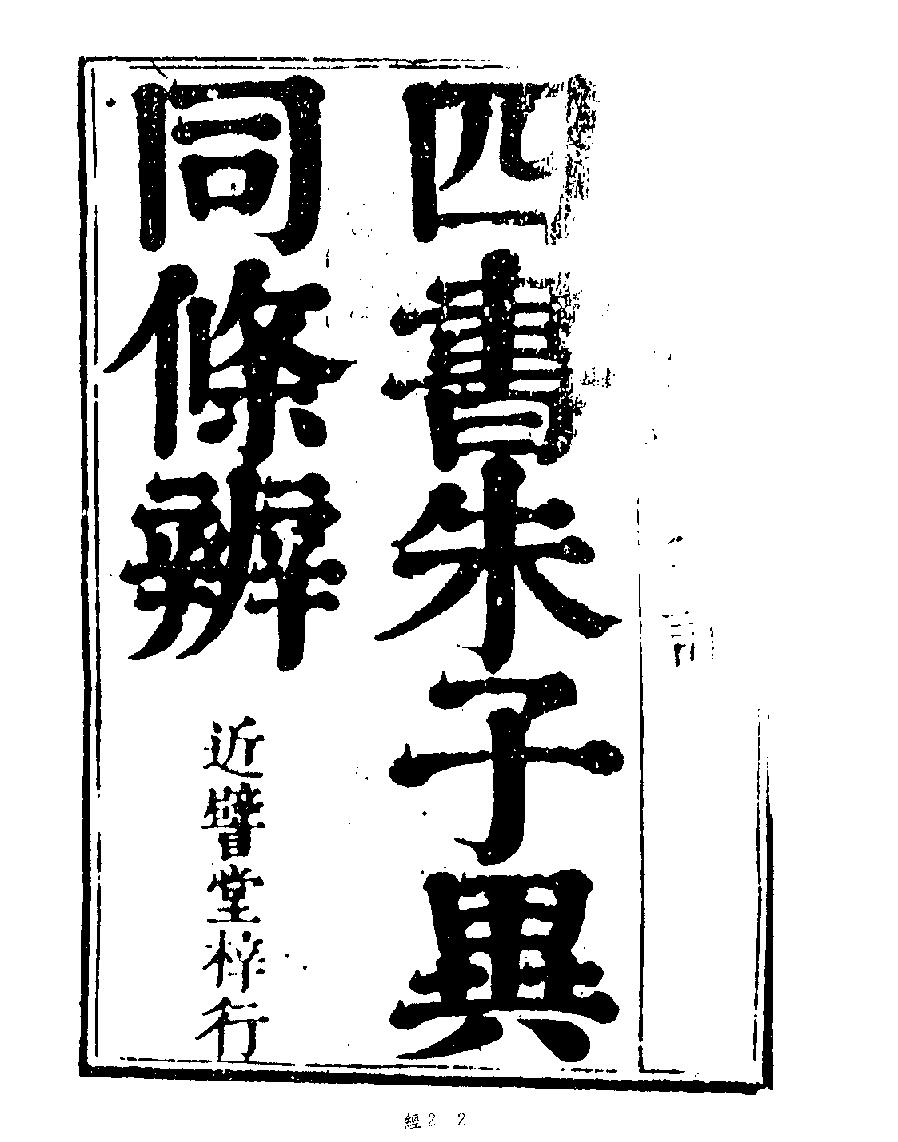 四書朱子異
同條辨
近譬堂梓行
經 2 2